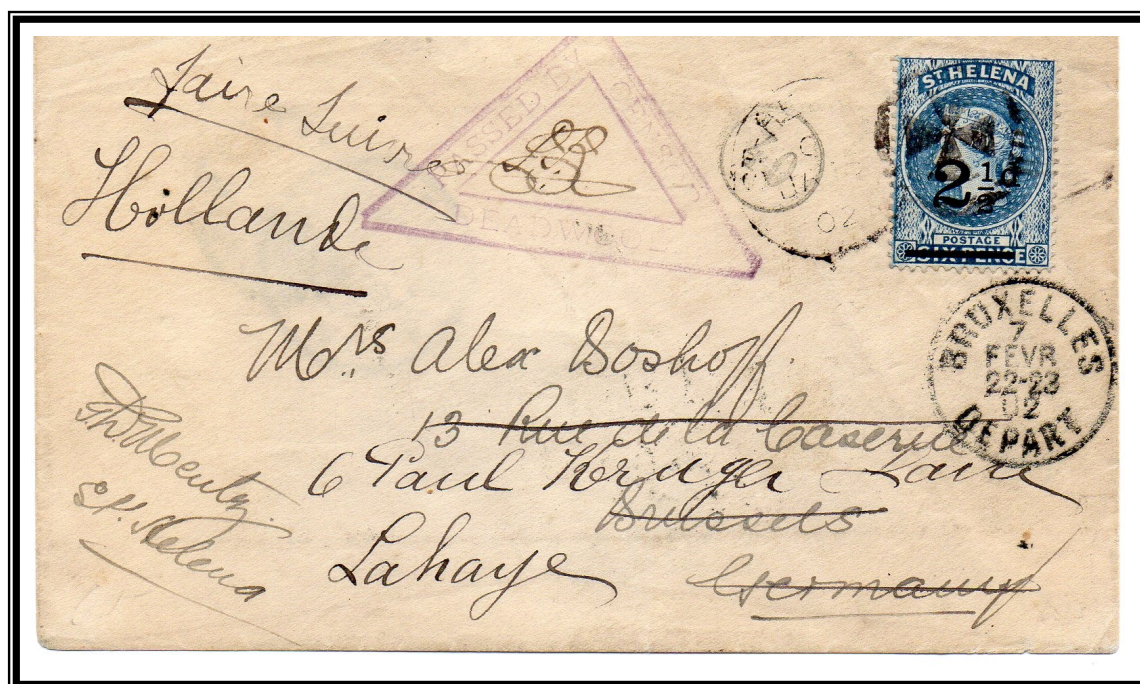 Faire Suivre
Hollande
PASSED BY CENSOR
DEADWOOD
02
ST HELENA
2 1/2 d
POSTAGE
SIX PENCE
BRUXELLES
7
FEVR
22-23
02
DEPART
Mrs Alex Boshoff.
13 Rue de la Caserne
6 Paul Kruger Laan
Brussels
Lahaye
Germany
St. Helena